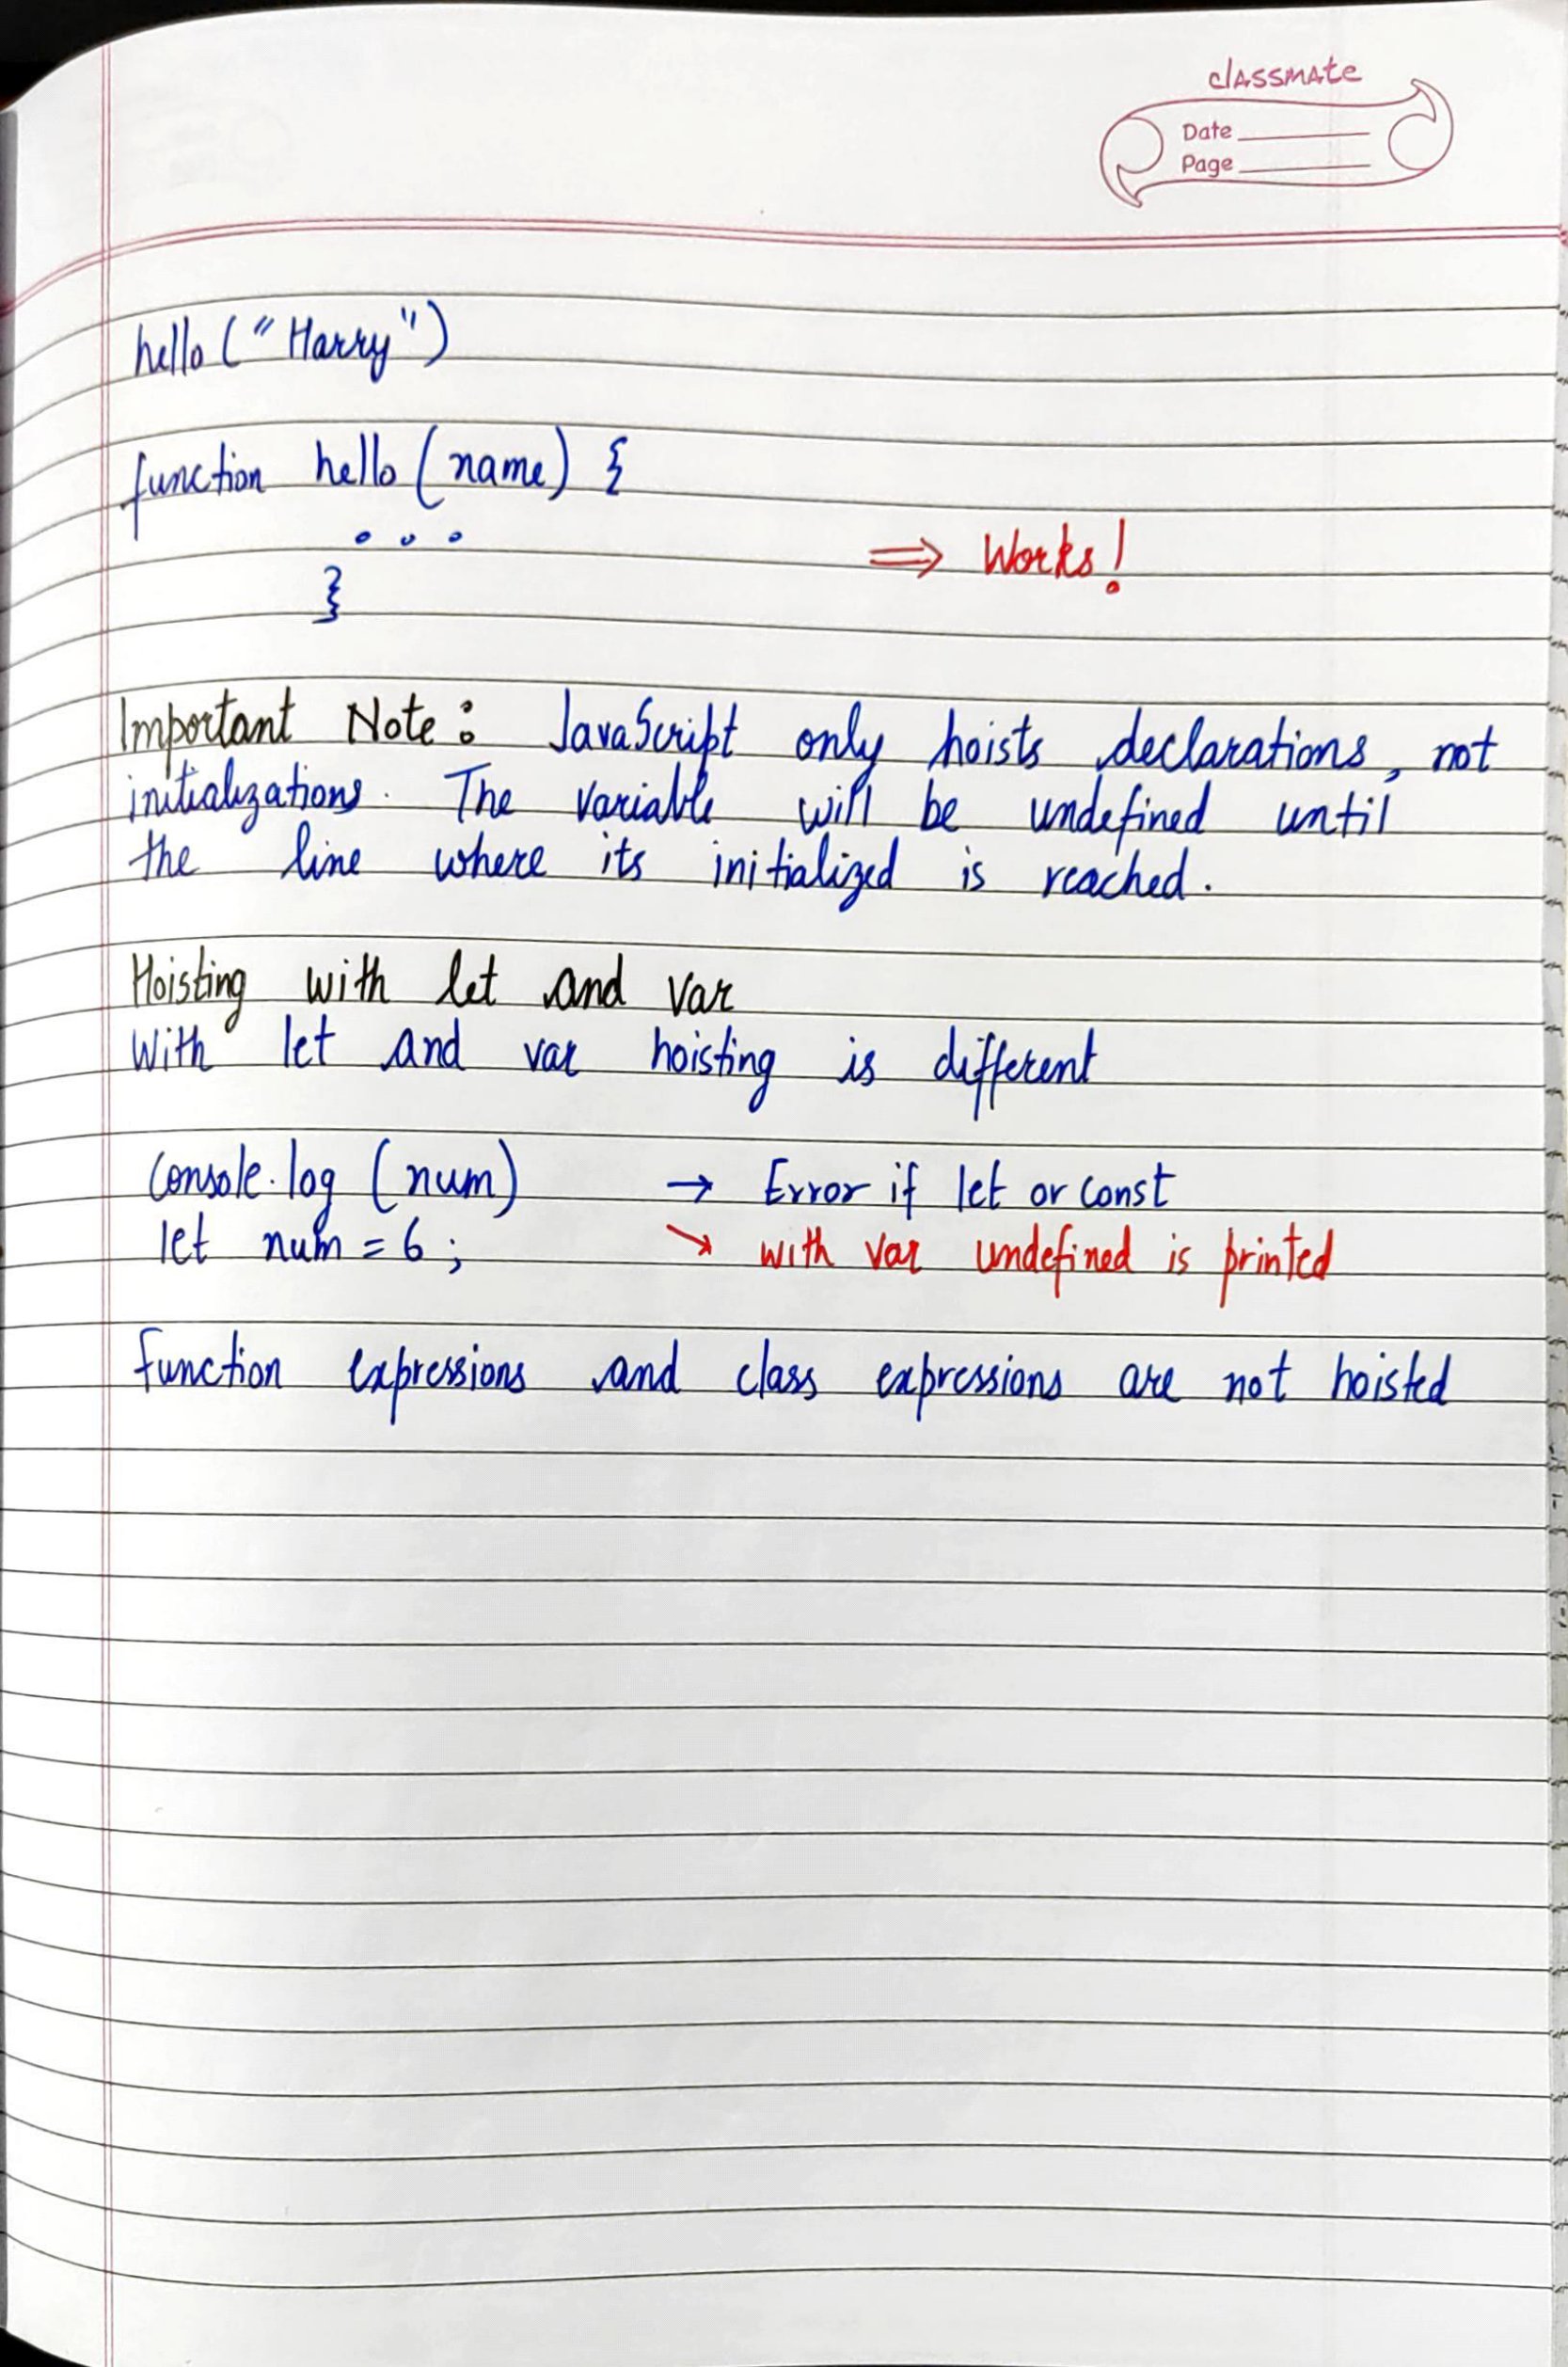 classmate
Date
Page
hello ("Harry")
function hello (name) {
...
} ⇒ Works!
Important Note: JavaScript only hoists declarations, not
initializations. The variable will be undefined until
the line where its initialized is reached.
Hoisting with let and var
With let and var hoisting is different
Console.log (num) → Error if let or const
let num = 6; ↘ with var undefined is printed
Function expressions and class expressions are not hoisted